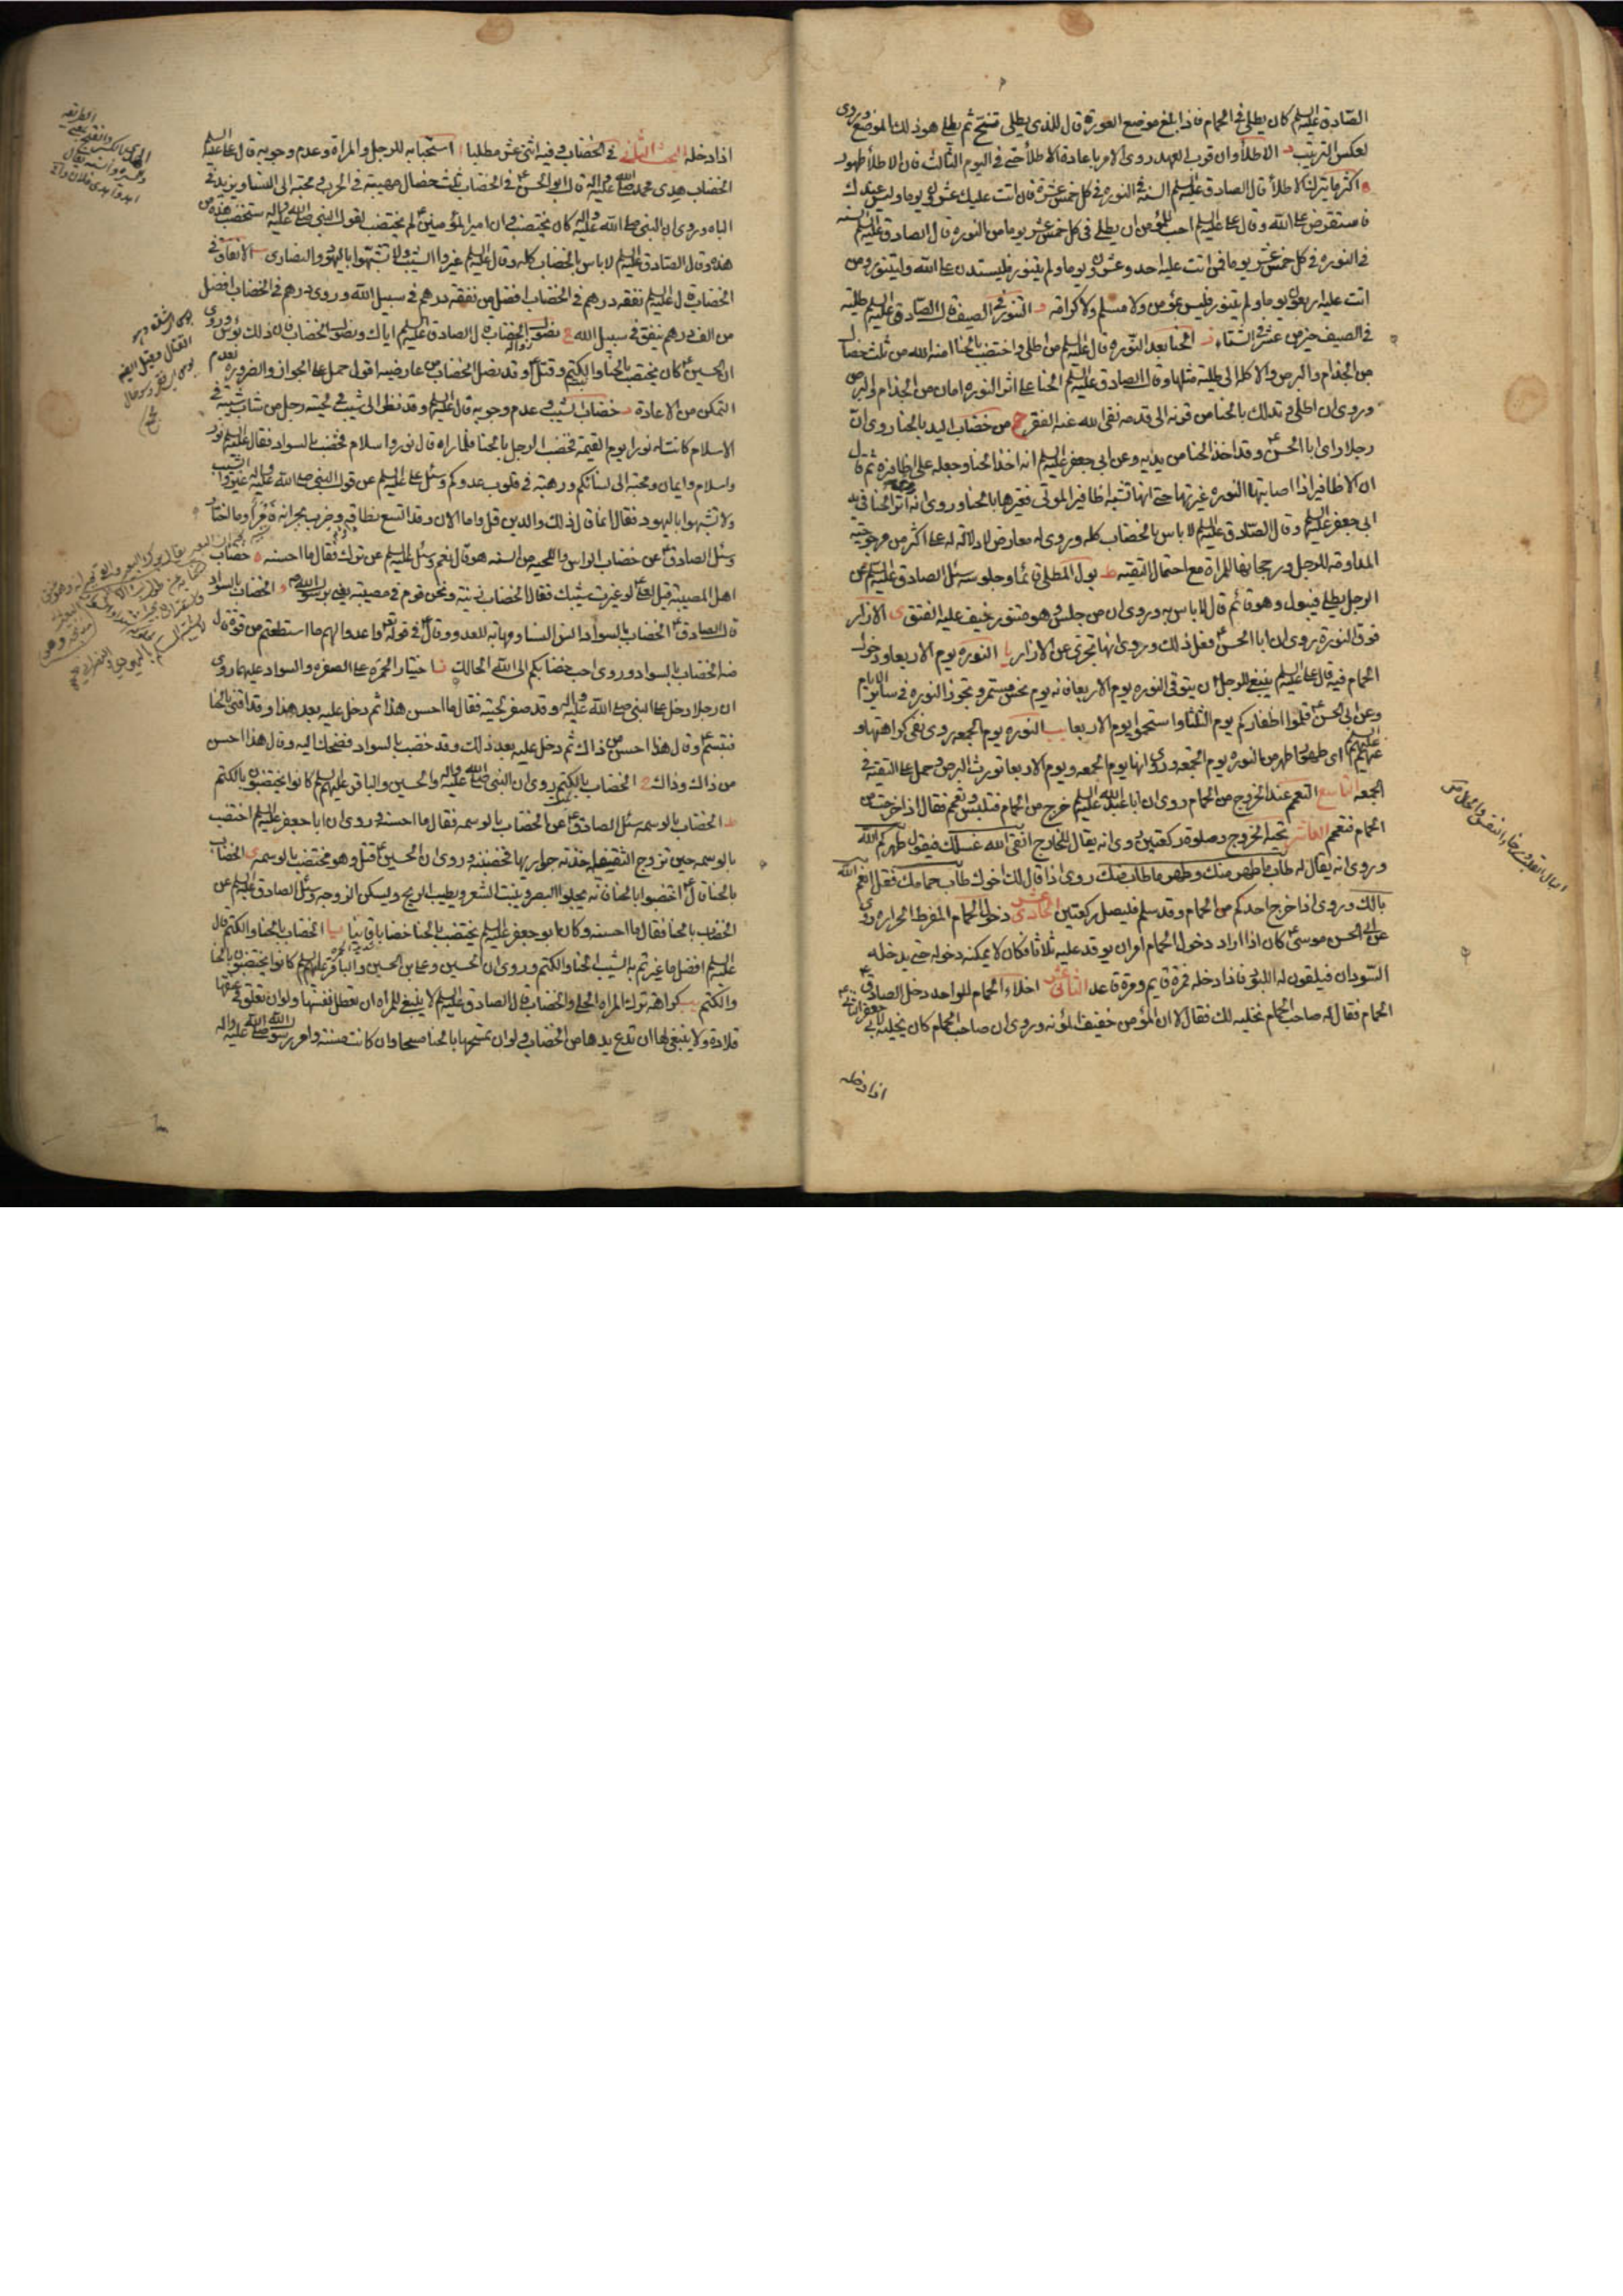 الصادق عليه السلم كان يطلى في الحمام فاذا بلغ موضع العورة قال للذى يطلى تنح ثم يطلى هو ذلك الموضع وروى
لعكس الترتيب د الاطلا وان قرب العهد روى الامر باعادة الاطلا حتى في اليوم الثالث فان الاطلا طهور
ه اكثر ما يترك الاطلا قال الصادق عليه السلم السنة في النوره في كل خمس عشرة فان اتت عليك عشرون يوما وليس عندك
فاستقرض على الله وقال على عليه السلم احب للمؤمن ان يطلى في كل خمس عشر يوما من النوره قال الصادق عليه السلم السنه
في النوره في كل خمس عشر يوما فمن اتت عليه احد وعشرون يوما ولم يتنور فليستدن على الله وليتنور ومن
اتت عليه اربعون يوما ولم يتنور فليس بمؤمن ولا مسلم ولا كرامة و التنور في الصيف قال الصادق عليه السلم طلية
في الصيف خير من عشر في الشتاء ز الحنا بعد النوره قال عليه السلم من اطلى واختضب بالحنا امنه الله من ثلث خصال
من الجذام والبرص والاكله الى طلية مثلها وقال الصادق عليه السلم الحنا على اثر النوره امان من الجذام والبرص
وروى ان اطلى وتدلك بالحنا من قرنه الى قدمه نفى الله عنه الفقر ح من خضاب اليد بالحنا روى ان
رجلا راى ابا الحسن ع وقد اخذ الحنا من يديه وعن ابي جعفر عليه السلم انه اخذ الحنا وجعله على اظافيره ثم قال
ان الاظافير اذا اصابتها النوره غيرتها حتى انها تشبه اظافير الموتى فغيرها بالحنا وروى انه اثر الحنا في يد
ابي جعفر عليه السلم وقال الصادق عليه السلم لا باس بالخضاب كله وروى له معارض لا دلاله له على اكثر من مرجوحية
المداومه للرجل ورجحانها للمراة مع احتمال التقيه ط بول المطلى قائما وجلوسه سئل الصادق عليه السلم عن
الرجل يطلى فيبول وهو قائم قال لا باس به وروى ان من جلس وهو متنور خيف عليه الفتق ى الازار
فوق النورة روى ان ابا الحسن ع فعل ذلك وروى انها تجزى عن الازار يا النوره يوم الاربعا ودخول
الحمام فيه قال على عليه السلم ينبغى للرجل ان يتوقى النوره يوم الاربعا فانه يوم نحس مستمر وتجوز النوره في ساير الايام
وعن ابي الحسن ع قلموا اظفاركم يوم الثلثا واستحموا يوم الاربعا يب النوره يوم الجمعه روى نفى كراهتها و
عنهم عليهم السلم اى طهور اطهر من النوره يوم الجمعه وروى انها يوم الجمعه ويوم الاربعا تورث البرص وحمل على التقية في
الجمعه التاسع التعمم عند الخروج من الحمام روى ان ابا عبد الله عليه السلم خرج من الحمام فتلبس وتعمم فقال اذا خرجت من
الحمام فتعمم العاشر تحية الخروج وصلوة ركعتين روى انه يقال للخارج انقى الله غسلك فيقول طهركم الله
وروى انه يقال له طاب ما طهر منك وطهر ما طاب منك روى اذا قال لك اخوك طاب حمامك فقل انعم الله
بالك وروى اذا خرج احدكم من الحمام وقد سلم فليصل ركعتين الحادى عشر دخول الحمام المفرط الحراره روى
عن ابي الحسن موسى ع كان اذا اراد دخول الحمام امر ان يوقد عليه ثلاثا فكان لا يمكنه دخوله حتى يدخله
السودان فيلقون له اللبود فاذا دخله فمرة قايم ومرة قاعد الثانى عشر اخلاء الحمام للواحد دخل الصادق ع
الحمام فقال له صاحب الحمام نخليه لك فقال لا ان المؤمن خفيف المؤنه وروى ان صاحب الحمام كان يخليه لابي جعفر الثانى ع
اذا دخله
اذا دخله البحث الثانى في الخضاب وفيه اثنى عشر مطلبا ا استحبابه للرجل والمراة وعدم وجوبه قال على عليه السلم
الخضاب هدى محمد صلى الله عليه واله قال ابو الحسن ع في الخضاب ثلث خصال مهيبة في الحرب ومحبة الى النسا ويزيد في
الباه وروى ان النبى صلى الله عليه واله كان يختضب وان امير المؤمنين ع لم يختضب لقول النبى صلى الله عليه واله ستخضب هذه من
هذه وقال الصادق عليه السلم لا باس بالخضاب كله وقال عليه السلم غيروا الشيب ولا تشبهوا باليهود والنصارى ب الانفاق في
الخضاب قال عليه السلم نفقة درهم في الخضاب افضل من نفقة درهم في سبيل الله وروى درهم في الخضاب افضل
من الف درهم ينفق في سبيل الله ج نصول الخضاب قال الصادق عليه السلم اياك ونصول الخضاب فان ذلك بؤس وروى
ان الحسين ع كان يختضب بالحنا والكتم وقتل ع وقد نصل الخضاب من عارضيه اقول حمل على الجواز والضروره لعدم
التمكن من الاعادة د خضاب الشيب وعدم وجوبه قال عليه السلم وقد نظر الى شيب في لحيته رجل من شاب شيبة في
الاسلام كانت له نورا يوم القيمة فخضب الرجل بالحنا فلما راه قال نور واسلام فخضب بالسواد فقال عليه السلم نور
واسلام وايمان ومحبة الى نسائكم ورهبة في قلوب عدوكم وسئل على عليه السلم عن قول النبى صلى الله عليه واله غيروا الشيب
ولا تشبهوا باليهود فقال انما قال ذلك والدين قل واما الان وقد اتسع نطاقه وضرب بجرانه فامرء وما اختار
وسئل الصادق ع عن خضاب الراس واللحيه من السنه هو قال نعم وسئل عليه السلم عن تركه فقال ما احسنه ه خضاب
اهل المصيبة قيل لعلى ع لو غيرت شيبك فقال الخضاب زينة ونحن قوم في مصيبة يعنى برسول الله ص و الخضاب بالسواد
قال الصادق ع الخضاب بالسواد انس النسا ومهابة للعدو وقال ع في قوله تعالى واعدوا لهم ما استطعتم من قوة قال
منه الخضاب بالسواد وروى احب خضابكم الى الله الحالك ز اختيار الحمره على الصفره والسواد عليهما روى
ان رجلا دخل على النبى صلى الله عليه واله وقد صفر لحيته فقال ما احسن هذا ثم دخل عليه بعد هذا وقد اقنى بالحنا
فتبسم ع وقال هذا احسن من ذاك ثم دخل عليه بعد ذلك وقد خضب بالسواد فضحك اليه وقال هذا احسن
من ذاك وذاك ح الخضاب بالكتم روى ان النبى صلى الله عليه واله والحسين والباقر عليهم السلم كانوا يختضبون بالكتم
ط الخضاب بالوسمه سئل الصادق ع عن الخضاب بالوسمه فقال ما احسنه وروى ان ابا جعفر عليه السلم اختضب
بالوسمه حين تزوج الثقفيه اخذته جواريها فخضبنه وروى ان الحسين ع قتل وهو مختضب بالوسمه ى الخضاب
بالحنا قال ع اختضبوا بالحنا فانه يجلوا البصر وينبت الشعر ويطيب الريح ويسكن الزوجه وسئل الصادق عليه السلم عن
الخضاب بالحنا فقال ما احسنه وكان ابو جعفر عليه السلم يختضب بالحنا خضابا قانيا يا الخضاب بالحنا والكتم قال
عليه السلم افضل ما غيرتم به الشيب الحنا والكتم وروى ان الحسين وعلى بن الحسين والباقر عليهم السلم كانوا يختضبون بالحنا
والكتم يب كراهة ترك المراة الحلى والخضاب قال الصادق عليه السلم لا ينبغى للمراة ان تعطل نفسها ولو ان تعلق في عنقها
قلادة ولا ينبغى لها ان تدع يدها من الخضاب ولو ان تمسحها بالحنا مسحا وان كانت مسنة وامر رسول الله صلى الله عليه واله